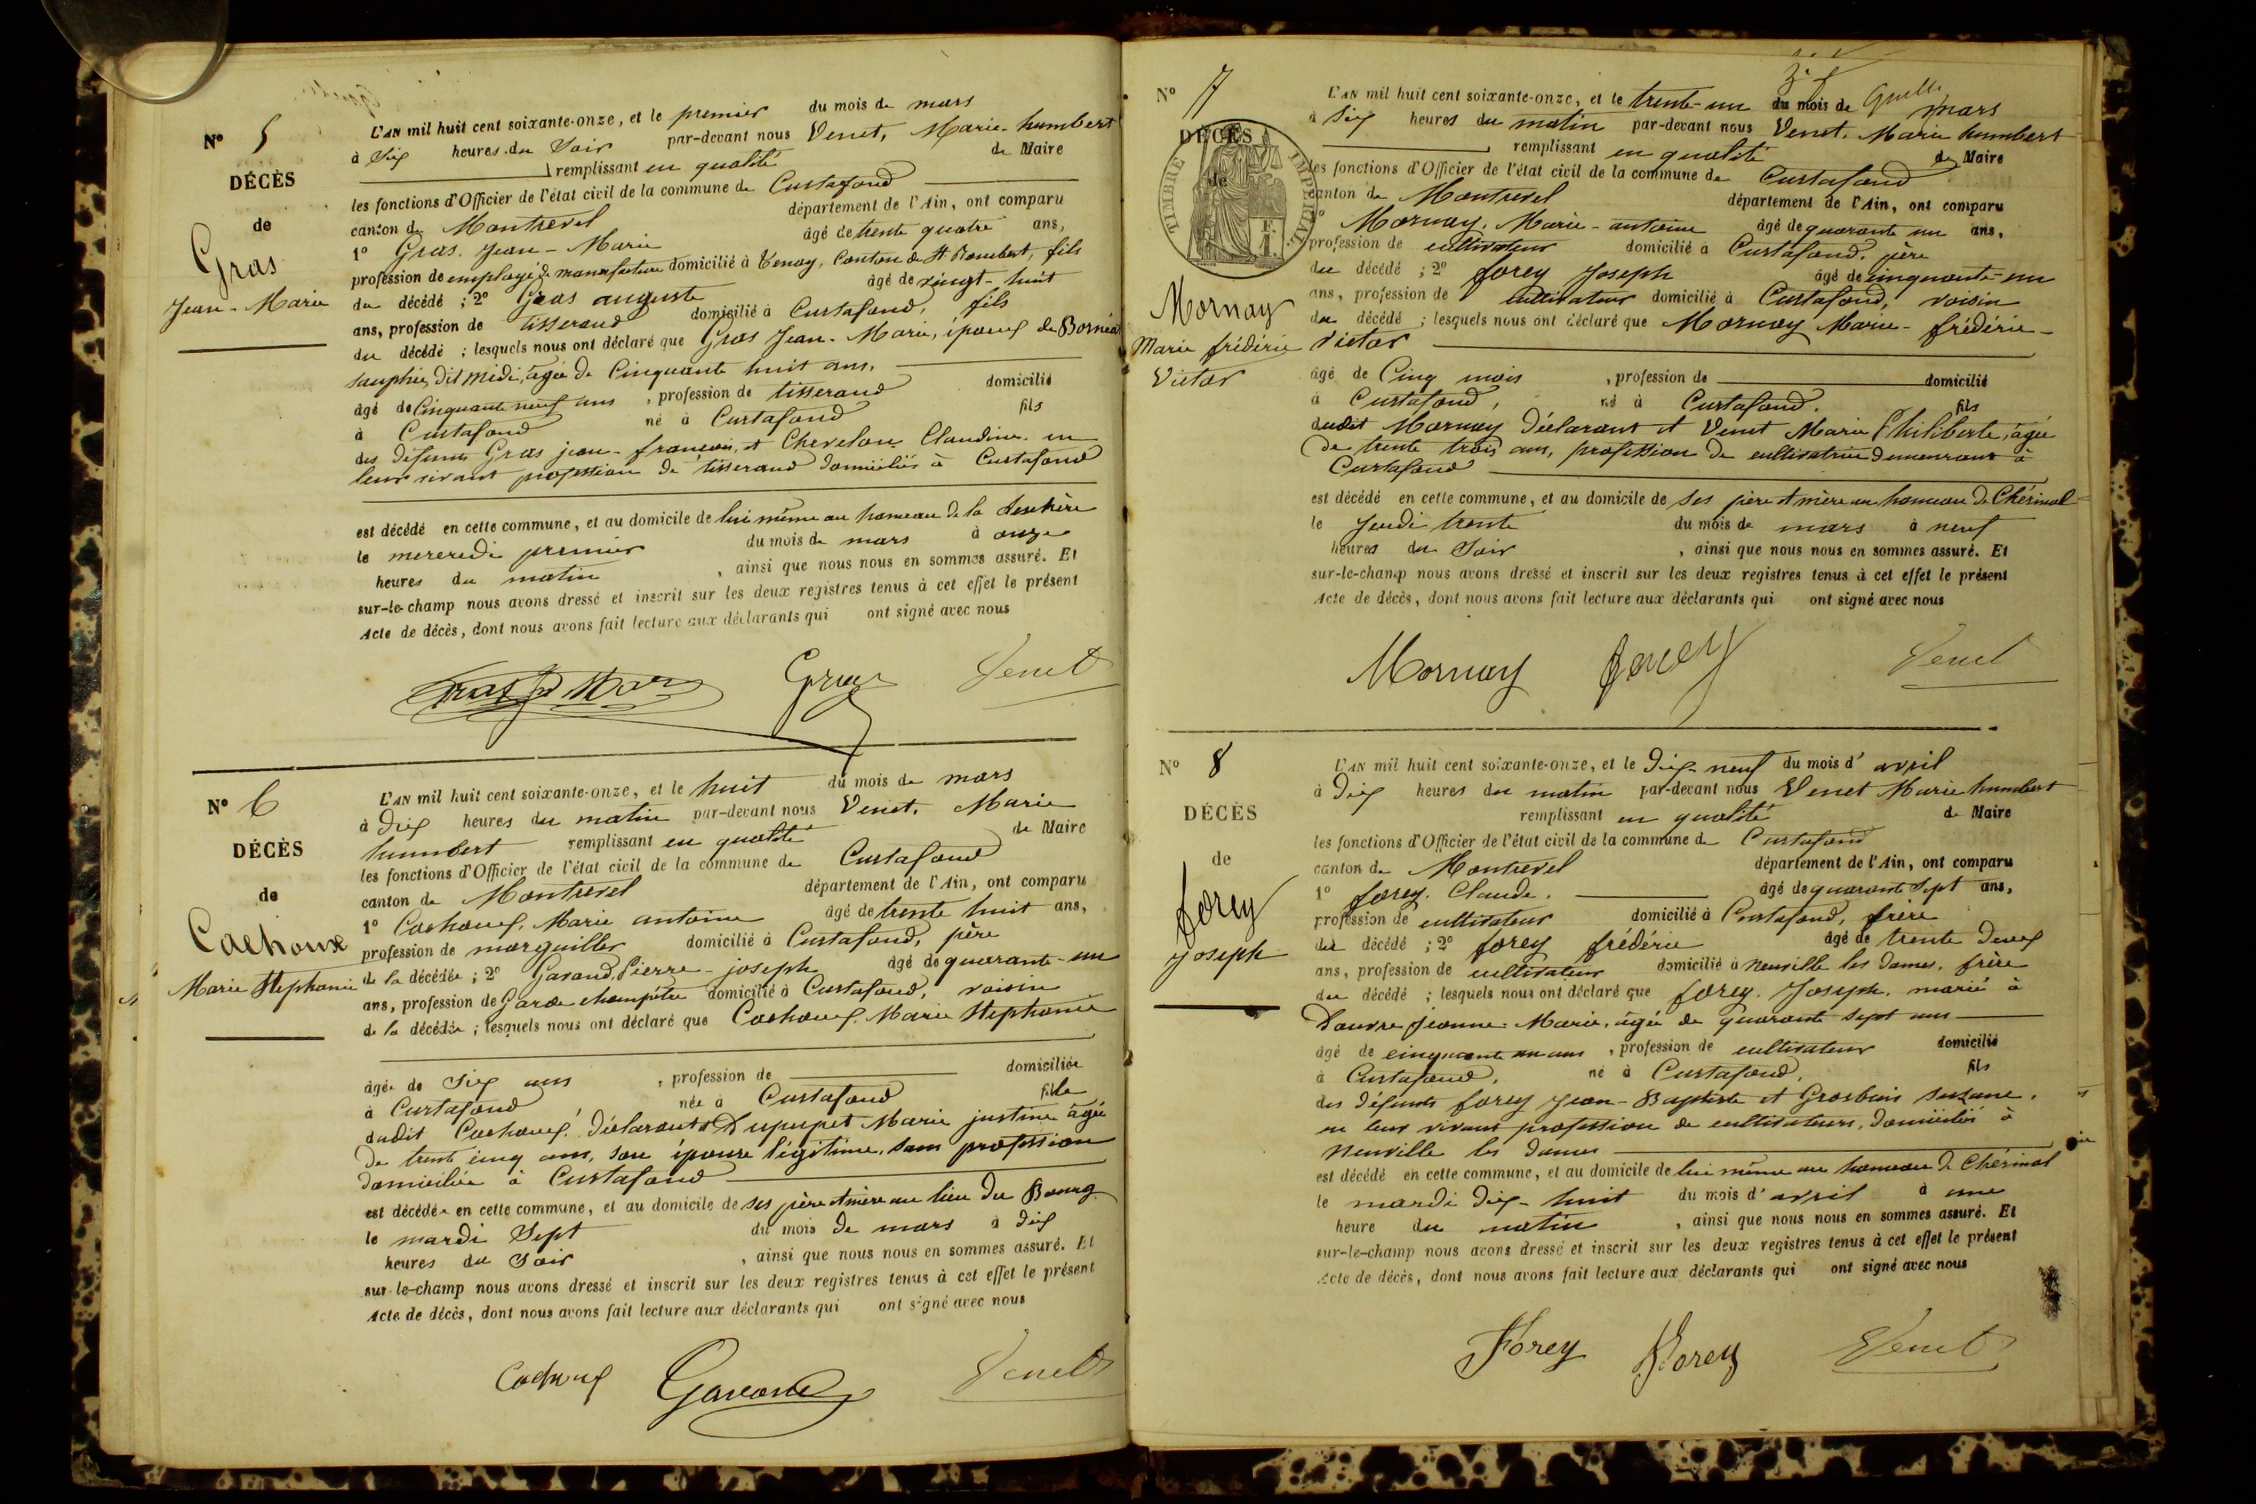 Nº 5
DÉCÈS
de
Gras
Jean-Marie
L'AN mil huit cent soixante-onze, et le premier du mois de mars
à Six heures du Soir par-devant nous Venet, Marie-humbert
remplissant en qualité de Maire
les fonctions d'Officier de l'état civil de la commune de Curtafond
canton de Montrevel département de l'Ain, ont comparu
1º Gras, Jean-Marie âgé de trente quatre ans,
profession de employé de manufacture domicilié à Tenay, Canton de St Rambert, fils
du décédé ; 2º Gras auguste âgé de vingt-huit
ans, profession de tisserand domicilié à Curtafond, fils
du décédé ; lesquels nous ont déclaré que Gras Jean-Marie, époux de
dit midi, âgée de Cinquante huit ans,
âgé de Cinquante neuf ans, profession de tisserand domicilié
à Curtafond né à Curtafond fils
des défunts Gras jean-françois, et Chevelon Claudine en
leur vivant profession de tisserand domiciliés à Curtafond
est décédé en cette commune, et au domicile de lui même au hameau de la
le mercredi premier du mois de mars à onze
heures du matin, ainsi que nous nous en sommes assuré. Et
sur-le-champ nous avons dressé et inscrit sur les deux registres tenus à cet effet le présent
Acte de décès, dont nous avons fait lecture aux déclarants qui ont signé avec nous
Gras Venet
Nº 6
DÉCÈS
de
Cachoux
Marie Stephanie
L'AN mil huit cent soixante-onze, et le huit du mois de mars
à Dix heures du matin par-devant nous Venet, Marie
humbert remplissant en qualité de Maire
les fonctions d'Officier de l'état civil de la commune de Curtafond
canton de Montrevel département de l'Ain, ont comparu
1º Cachoux, Marie antoine âgé de trente huit ans,
profession de marguiller domicilié à Curtafond, père
de la décédée ; 2º Gavand, Pierre-joseph âgé de quarante-un
ans, profession de Garde champêtre domicilié à Curtafond, voisin
de la décédée ; lesquels nous ont déclaré que Cachoux Marie Stephanie
âgée de Six ans, profession de domiciliée
à Curtafond née à Curtafond fille
dudit Cachoux, déclarant et Dupupet Marie justine âgée
de trente cinq ans, son épouse légitime, sans profession
domiciliée à Curtafond
est décédée en cette commune, et au domicile de ses père et mère au lieu du Bourg
le mardi Sept du mois de mars à dix
heures du Soir, ainsi que nous nous en sommes assuré. Et
sur-le-champ nous avons dressé et inscrit sur les deux registres tenus à cet effet le présent
Acte de décès, dont nous avons fait lecture aux déclarants qui ont signé avec nous
Cachoux Gavand Venet
Nº 7
DÉCÈS
de
TIMBRE IMPÉRIAL
Mornay
Marie frédéric
Victor
L'AN mil huit cent soixante-onze, et le trente-un du mois de mars
à Six heures du matin par-devant nous Venet, Marie humbert
remplissant en qualité de Maire
les fonctions d'Officier de l'état civil de la commune de Curtafond
canton de Montrevel département de l'Ain, ont comparu
1º Mornay, Marie-antoine âgé de quarante un ans,
profession de cultivateur domicilié à Curtafond, père
du décédé ; 2º forey Joseph âgé de cinquante-un
ans, profession de cultivateur domicilié à Curtafond, voisin
du décédé ; lesquels nous ont déclaré que Mornay Marie-frédéric-
Victor
âgé de Cinq mois, profession de domicilié
à Curtafond, né à Curtafond. fils
dudit Mornay déclarant et Venet Marie Philiberte, âgée
de trente trois ans, profession de cultivatrice demeurant à
Curtafond
est décédé en cette commune, et au domicile de ses père et mère au hameau de Chérinal
le Jeudi trente du mois de mars à neuf
heures du Soir, ainsi que nous nous en sommes assuré. Et
sur-le-champ nous avons dressé et inscrit sur les deux registres tenus à cet effet le présent
Acte de décès, dont nous avons fait lecture aux déclarants qui ont signé avec nous
Mornay forey Venet
Nº 8
DÉCÈS
de
forey
Joseph
L'AN mil huit cent soixante-onze, et le Dix-neuf du mois d'avril
à Dix heures du matin par-devant nous Venet Marie humbert
remplissant en qualité de Maire
les fonctions d'Officier de l'état civil de la commune de Curtafond
canton de Montrevel département de l'Ain, ont comparu
1º forey, Claude. âgé de quarante Sept ans,
profession de cultivateur domicilié à Curtafond, frère
du décédé ; 2º forey frédéric âgé de trente deux
ans, profession de cultivateur domicilié à Neuville les dames, frère
du décédé ; lesquels nous ont déclaré que forey, Joseph, marié à
Jeanne-Marie, âgée de quarante sept ans
âgé de cinquante un ans, profession de cultivateur domicilié
à Curtafond, né à Curtafond, fils
des défunts forey Jean-Baptiste et Grosbuis Suzanne,
en leur vivant profession de cultivateurs, domiciliés à
Neuville les dames
est décédé en cette commune, et au domicile de lui même au hameau de Chérinal
le mardi dix-huit du mois d'avril à une
heure du matin, ainsi que nous nous en sommes assuré. Et
sur-le-champ nous avons dressé et inscrit sur les deux registres tenus à cet effet le présent
Acte de décès, dont nous avons fait lecture aux déclarants qui ont signé avec nous
Forey Forey Venet